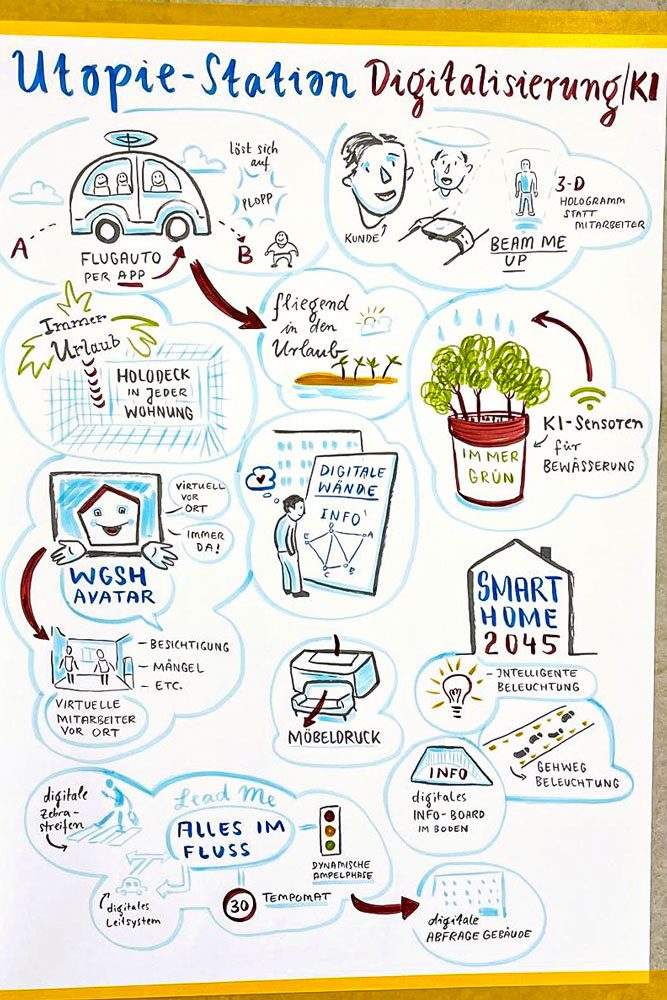 Utopie-Station Digitalisierung/KI
löst sich
auf
PLOPP
A
B
FLUGAUTO
PER APP
KUNDE
3-D
HOLOGRAMM
STATT
MITARBEITER
BEAM ME
UP
Immer
Urlaub
HOLODECK
IN JEDER
WOHNUNG
fliegend
in den
Urlaub
IMMER
GRÜN
KI-SENSOREN
für
BEWÄSSERUNG
VIRTUELL
VOR
ORT
IMMER
DA!
WGSH
AVATAR
- BESICHTIGUNG
- MÄNGEL
- ETC.
VIRTUELLE
MITARBEITER
VOR ORT
DIGITALE
WÄNDE
INFO
A
E
C
B
MÖBELDRUCK
SMART
HOME
2045
- INTELLIGENTE
BELEUCHTUNG
GEHWEG
BELEUCHTUNG
INFO
digitales
INFO-BOARD
IM BODEN
digitale
Zebra-
streifen
Lead Me
ALLES IM
FLUSS
DYNAMISCHE
AMPELPHASE
digitales
Leitsystem
30
TEMPOMAT
digitale
ABFRAGE GEBÄUDE